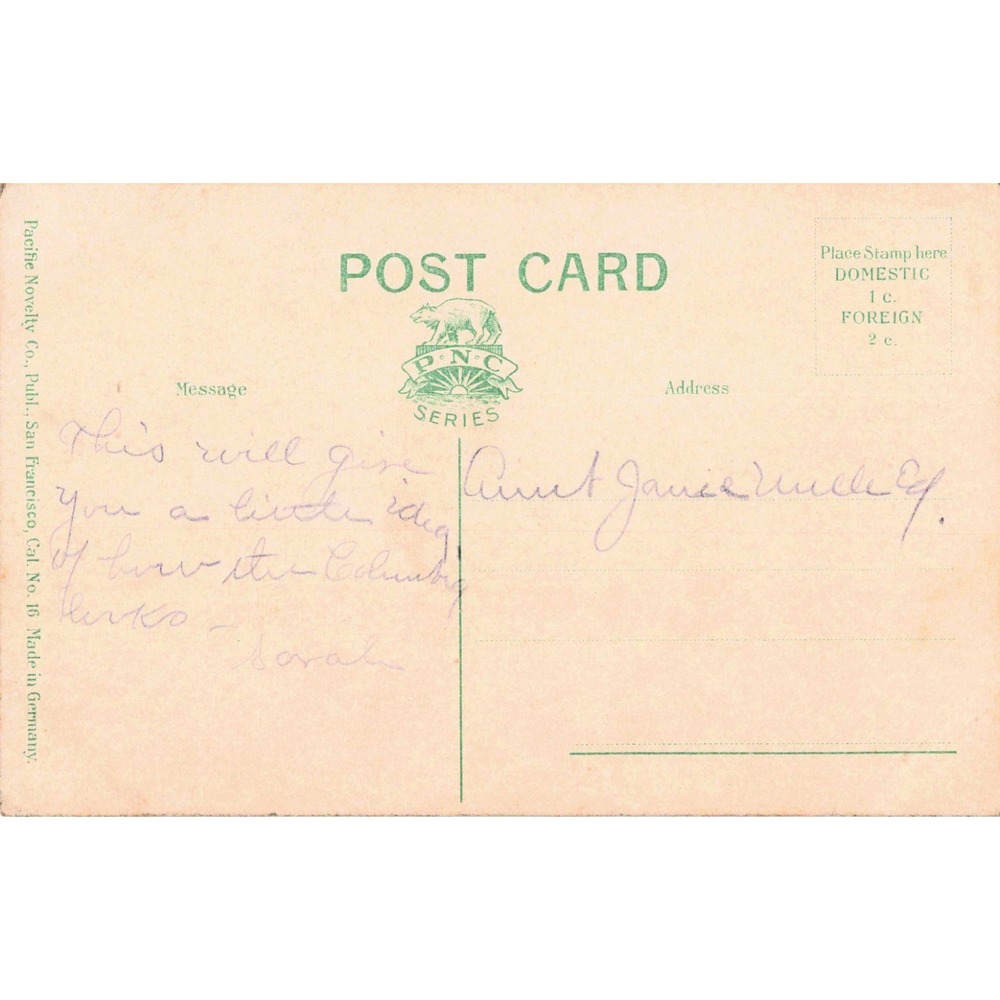 POST CARD
Place Stamp here
DOMESTIC
1 c.
FOREIGN
2 c.
P·N·C
SERIES
Message
Address
This will give
you a little idea
of how the Columbia
looks –
Sarah
Aunt Janie
Pacific Novelty Co., Publ., San Francisco, Cal. No. 16 Made in Germany.